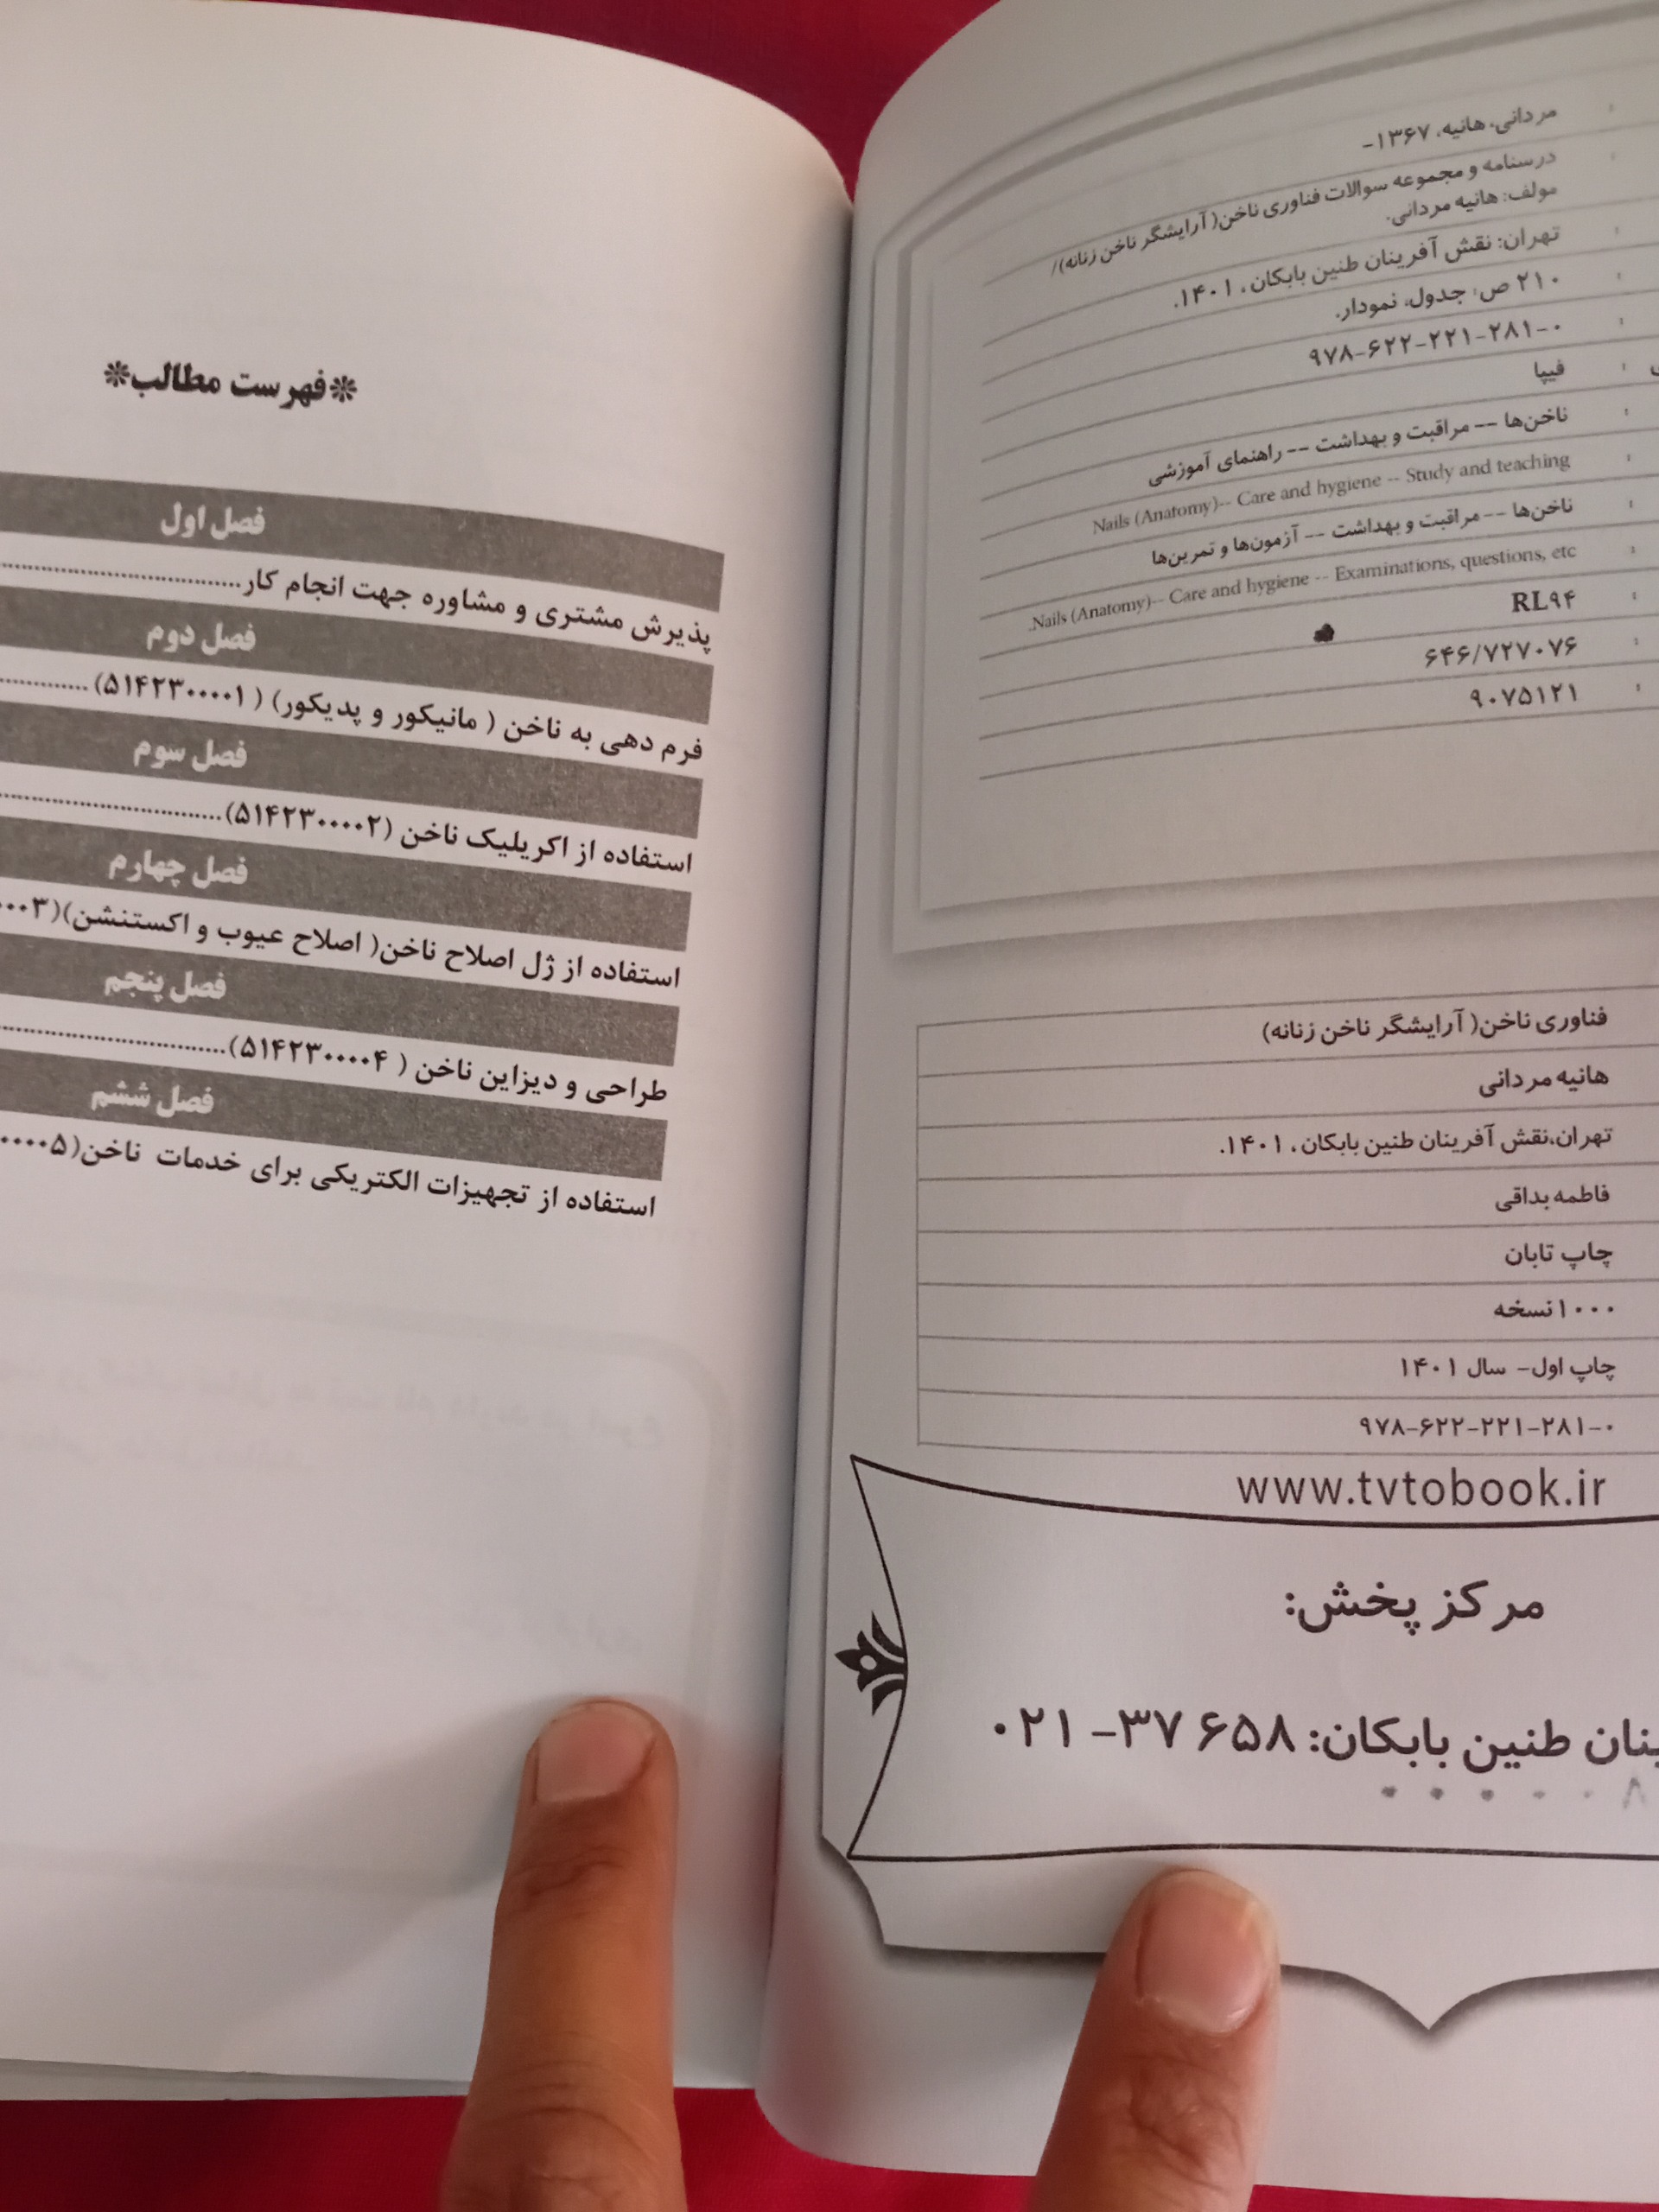 مردانی، هانیه، ۱۳۶۷-
درسنامه و مجموعه سوالات فناوری ناخن( آرایشگر ناخن زنانه)/
مولف: هانیه مردانی.
تهران: نقش آفرینان طنین بابکان، ۱۴۰۱.
۲۱۰ ص: جدول، نمودار.
۹۷۸-۶۲۲-۲۲۱-۲۸۱-۰
فیپا
ناخن‌ها -- مراقبت و بهداشت -- راهنمای آموزشی
Nails (Anatomy)-- Care and hygiene -- Study and teaching
ناخن‌ها -- مراقبت و بهداشت -- آزمون‌ها و تمرین‌ها
Nails (Anatomy)-- Care and hygiene -- Examinations, questions, etc.
RL۹۴
۶۴۶/۷۲۷۰۷۶
۹۰۷۵۱۲۱
فناوری ناخن( آرایشگر ناخن زنانه)
هانیه مردانی
تهران،نقش آفرینان طنین بابکان، ۱۴۰۱.
فاطمه بداقی
چاپ تابان
۱۰۰۰ نسخه
چاپ اول- سال ۱۴۰۱
۹۷۸-۶۲۲-۲۲۱-۲۸۱-۰
www.tvtobook.ir
مرکز پخش:
طنین بابکان: ۳۷۶۵۸ -۰۲۱
*فهرست مطالب*
فصل اول
پذیرش مشتری و مشاوره جهت انجام کار
فصل دوم
فرم دهی به ناخن ( مانیکور و پدیکور) ( ۵۱۴۲۳۰۰۰۰۱)
فصل سوم
استفاده از اکریلیک ناخن (۵۱۴۲۳۰۰۰۰۲)
فصل چهارم
استفاده از ژل اصلاح ناخن( اصلاح عیوب و اکستنشن)(
فصل پنجم
طراحی و دیزاین ناخن ( ۵۱۴۲۳۰۰۰۰۴)
فصل ششم
استفاده از تجهیزات الکتریکی برای خدمات ناخن(